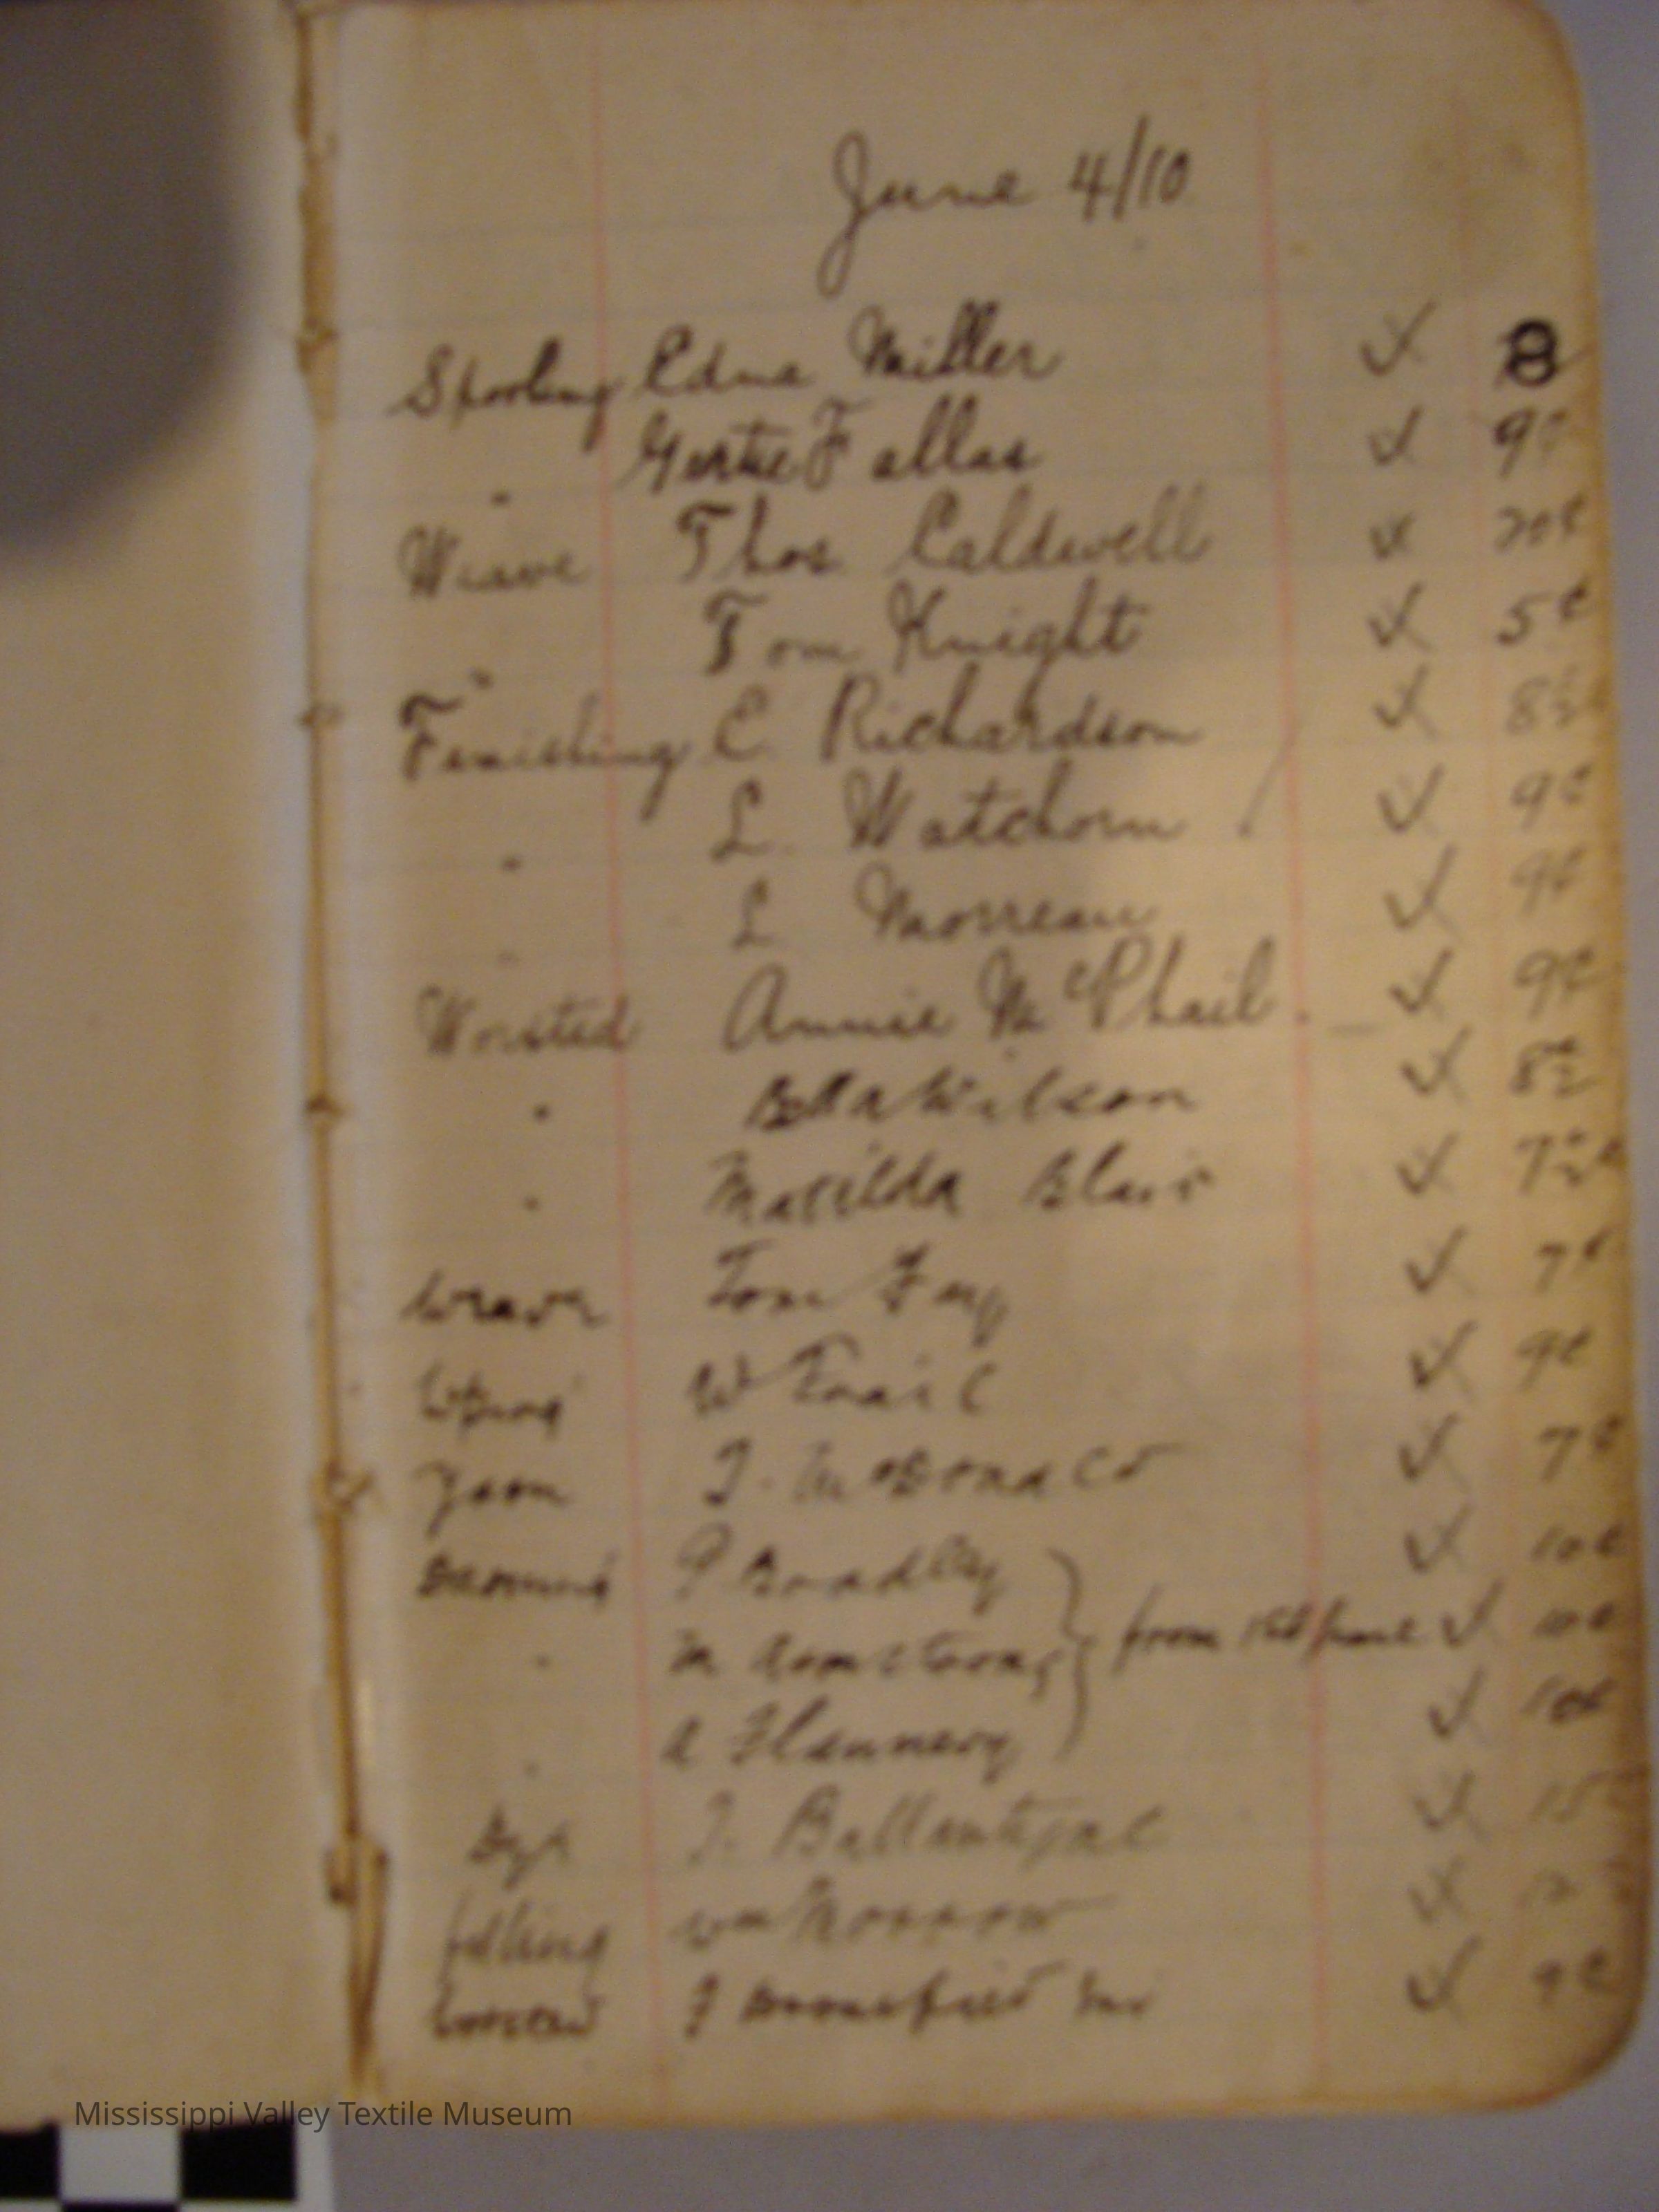 June 4/10
Spooling Edna Miller ✓ 8
" Gertie Fallas ✓ 9¢
Weave Thos Caldwell ✓ 20¢
" Tom Knight ✓ 5¢
Finishing C. Richardson ✓ 8½
" L. Watchorn ✓ 9¢
" L Morreau ✓ 9¢
Worsted Annie McPhail ✓ 9¢
" Bella Wilson ✓ 8½
" Matilda Blair ✓ 7½
Weave Tom Fay ✓ 7¢
W Trail ✓ 9¢
Yarn J. McDonald ✓ 7¢
P Bradley ✓ 10¢
" M Armstrong } from 1st June ✓ 10¢
" A Flannery ✓ 10¢
Dye J. Ballantyne ✓ 15
fulling Wm Morrow ✓
Worsted J ✓ 9¢
Mississippi Valley Textile Museum